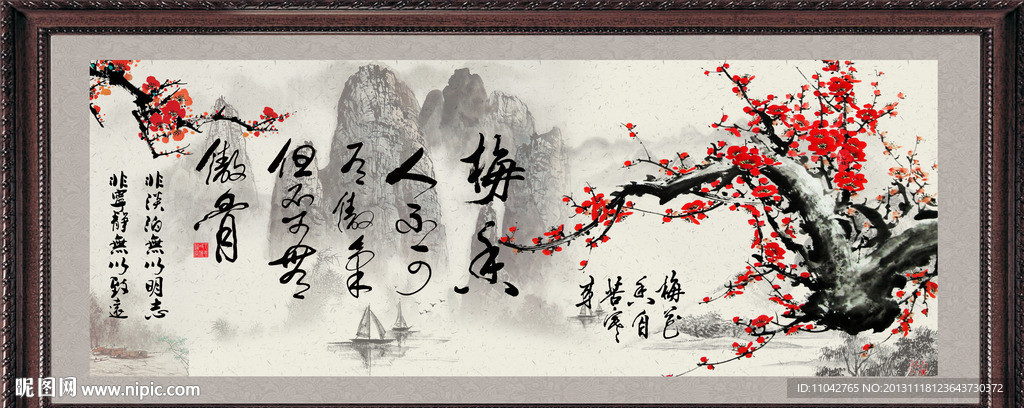 梅花
香自
苦寒
来
梅香
人不可
有傲气
但不可无
傲骨
非淡泊無以明志
非寧静無以致遠
昵图网 www.nipic.com
ID:11042765 NO:20131118123643730372